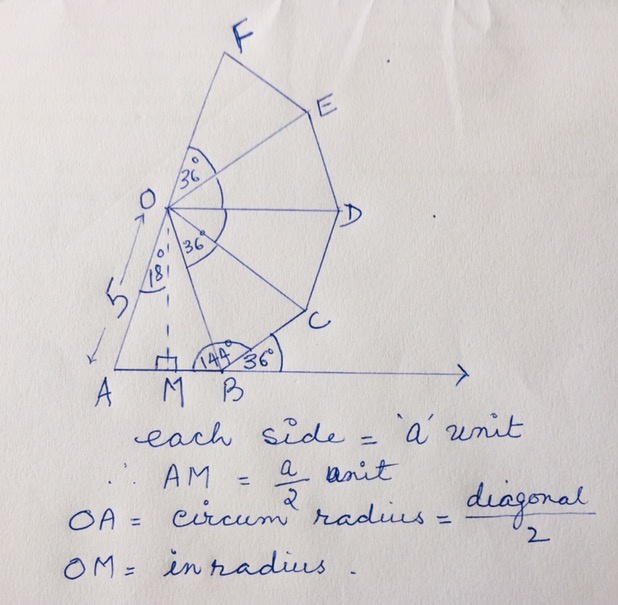 F
E
36°
O
D
36°
18°
5
C
144°
36°
A M B
each side = 'a' unit
∴ AM = a/2 unit
OA = circum radius = diagonal/2
OM = inradius.